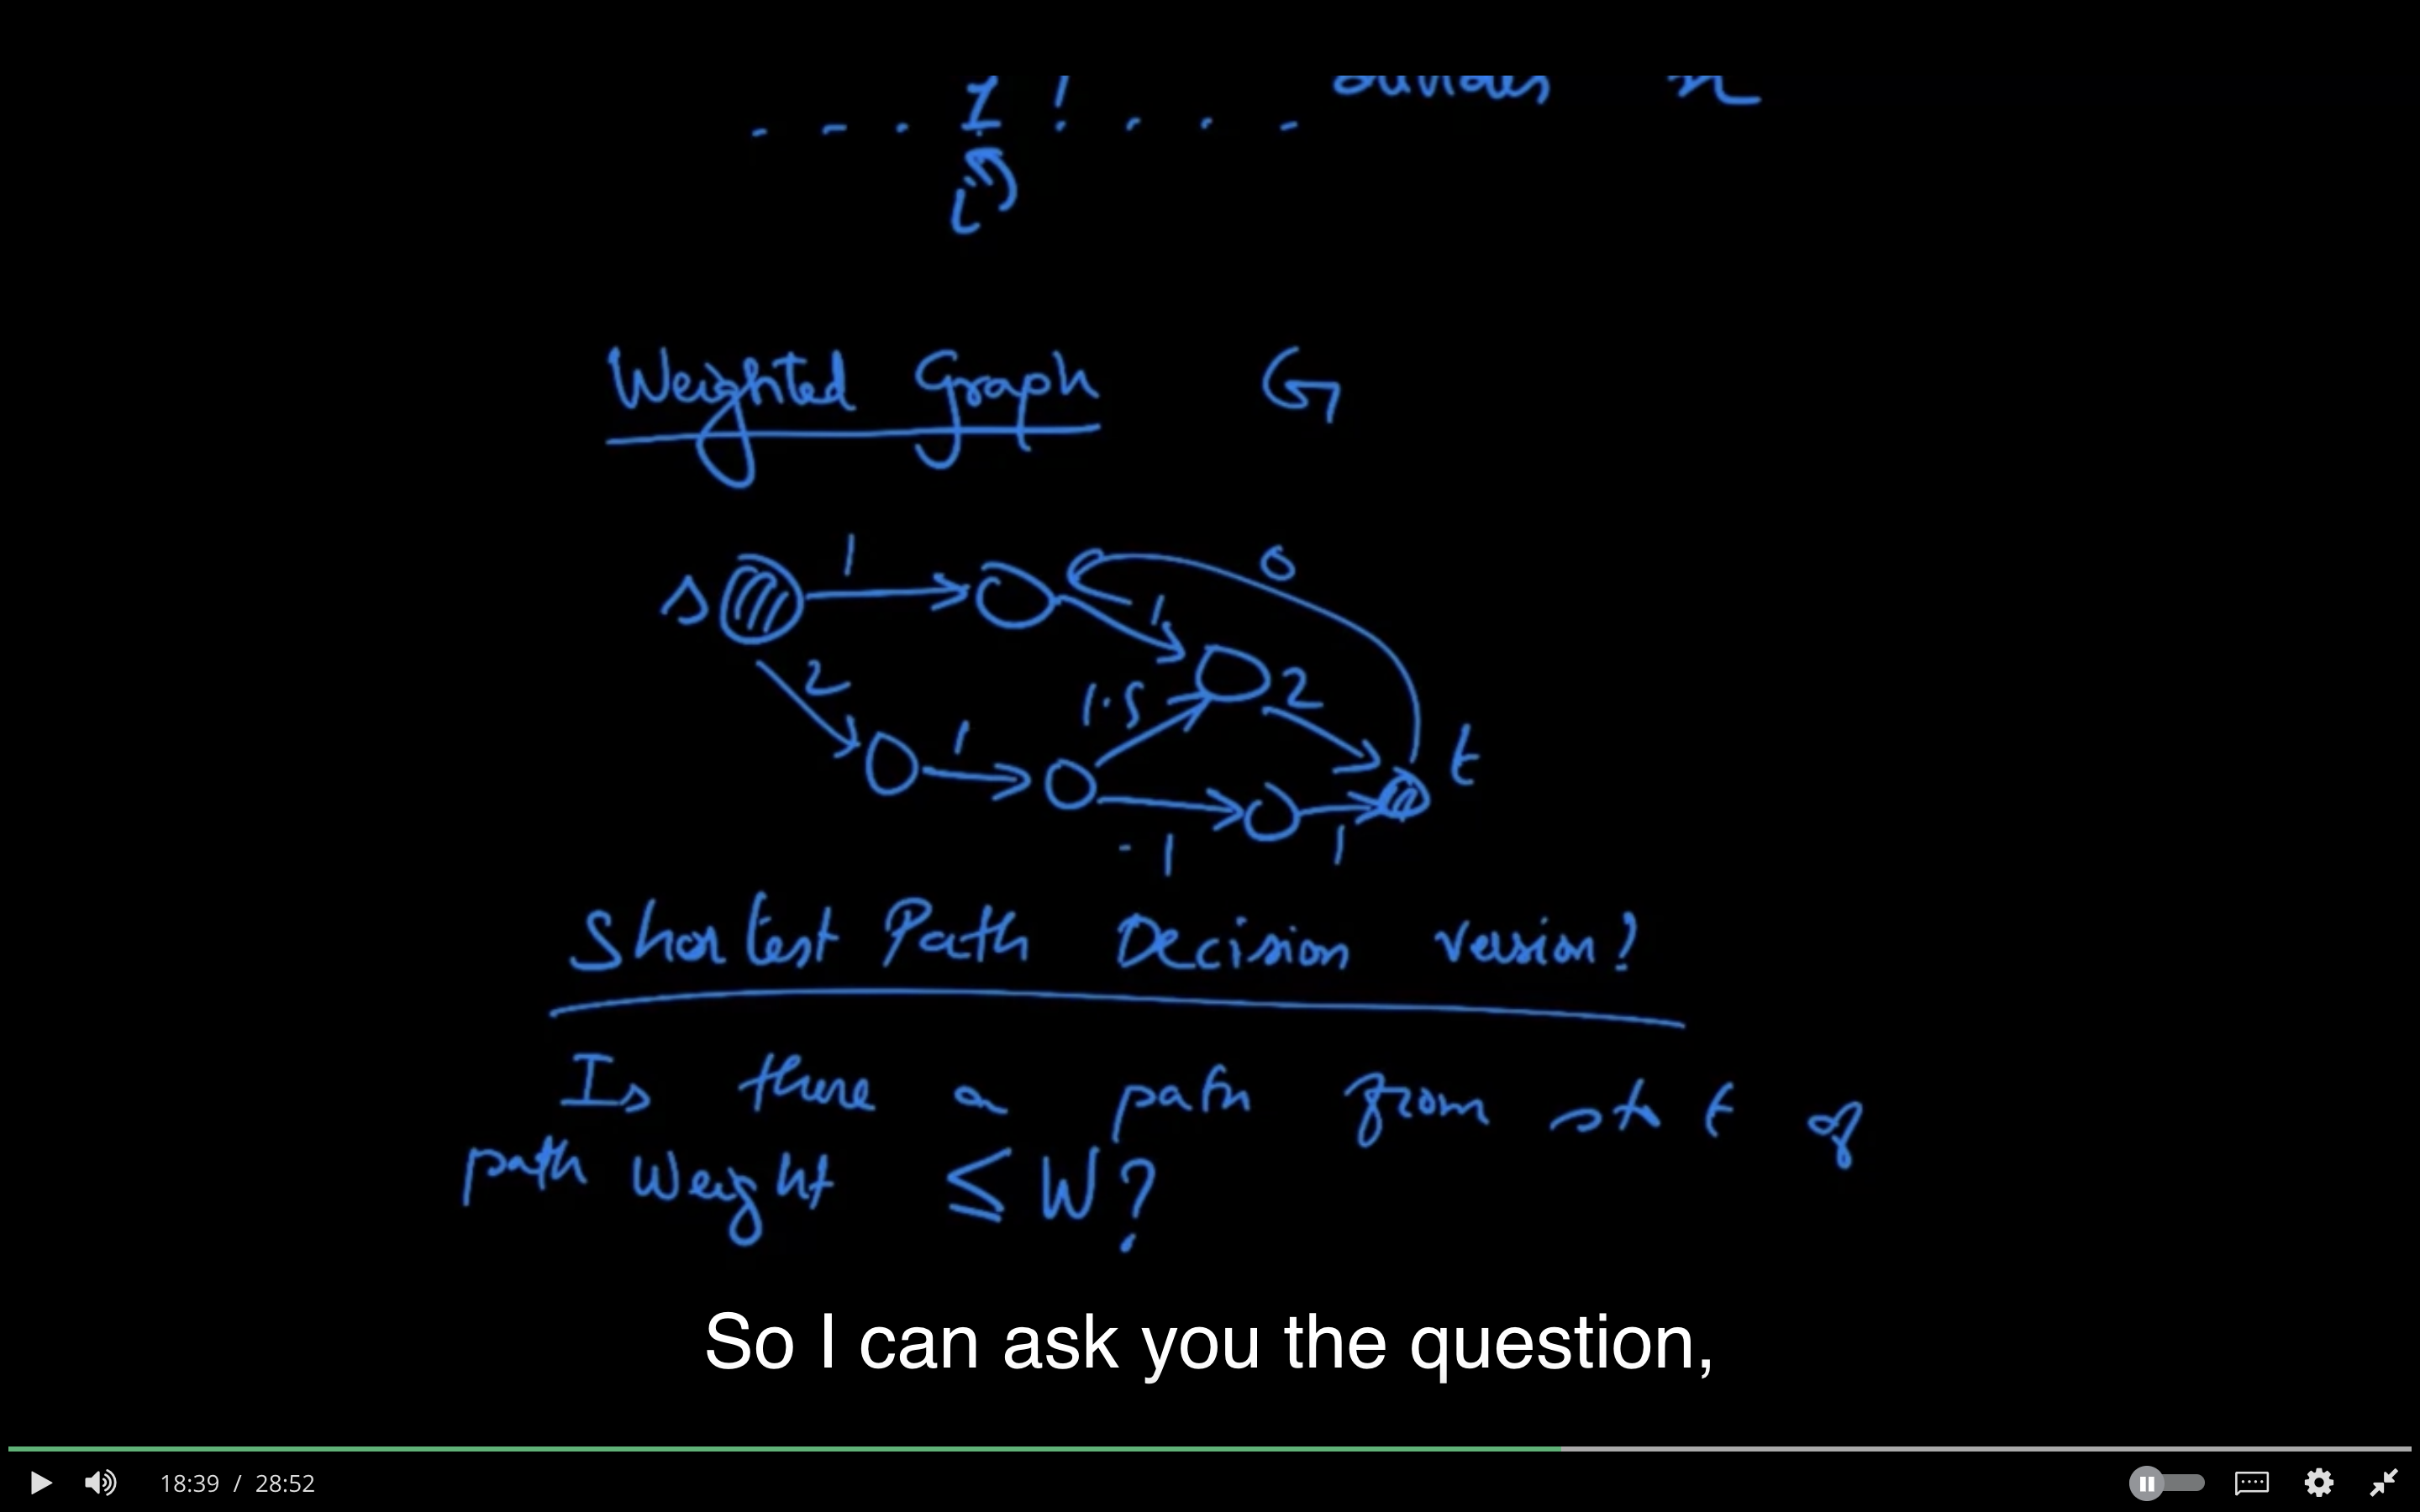 1 !
i
Weighted Graph G
1 0
s 1
2 1.5 2
1 t
-1 1
Shortest Path Decision version?
Is there a path from s to t of
path Weight ≤ W?
So I can ask you the question,
18:39 / 28:52